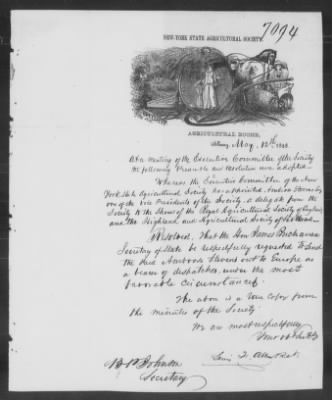 7094
NEW-YORK STATE AGRICULTURAL SOCIETY.
AGRICULTURAL ROOMS,
Albany, May, 12th, 1848.
At a meeting of the Executive Committee of the Society
the following Preamble and Resolution were adopted.
Whereas the Executive Committee of the New
York State Agricultural Society has appointed Ambrose Stevens Esq
one of the Vice Presidents of the Society, a delegate from the
Society to the Shows of the Royal Agricultural Society of England
and the Highland and Agricultural Society of Scotland.
Resolved, That the Hon James Buchanan
Secretary of State be respectfully requested to send
the said Ambrose Stevens out to Europe as
a bearer of dispatches, under the most
favorable circumstances.
The above is a true copy from
the minutes of the Society
We are most respectfully
Your Obt Svts
Lewis F. Allen Prest.
B. P. Johnson
Secretary